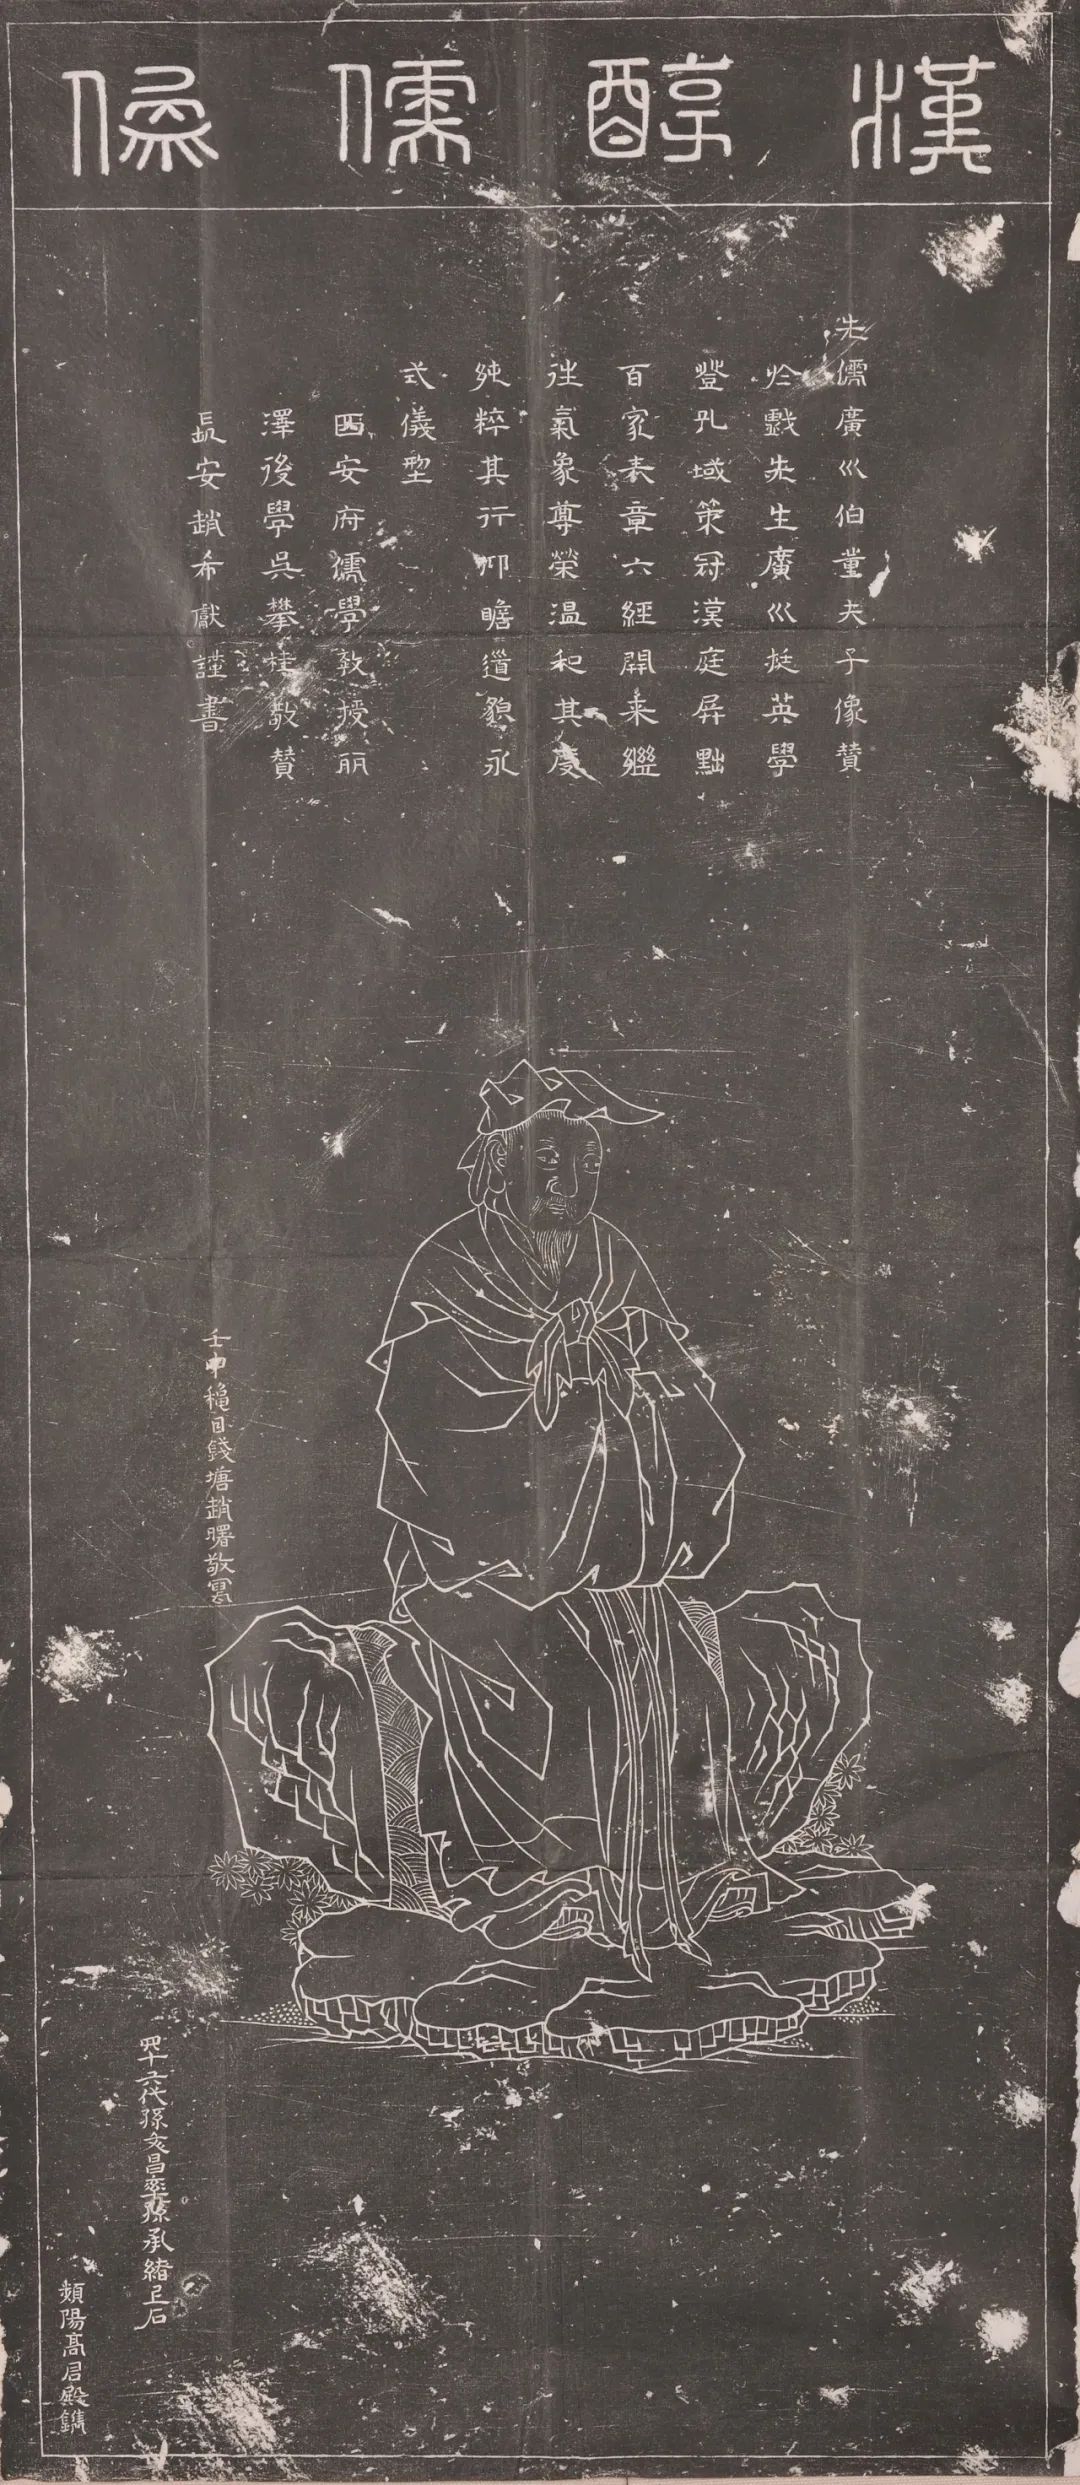 漢醇儒像
先儒廣川伯董夫子像贊
於戲先生廣川挺英學
登孔域策冠漢庭屏黜
百家表章六經開來繼
往氣象尊榮溫和其度
純粹其行仰瞻道貌永
式儀型
西安府儒學教授丽
澤後學吳攀桂敬贊
長安趙希獻謹書
壬申穐日錢塘趙曙敬寫
四十六代孫文昌率孫承緒上石
頻陽高君殿鐫